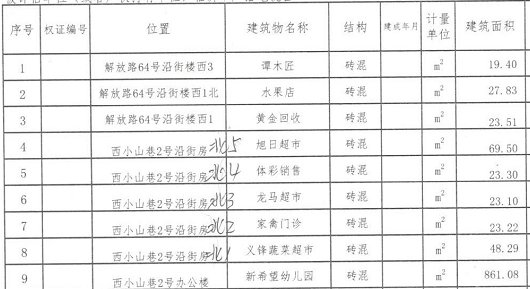 序号 权证编号 位置 建筑物名称 结构 建成年月 计量单位 建筑面积
1 解放路64号沿街楼西3 谭木匠 砖混 m² 19.40
2 解放路64号沿街楼西1北 水果店 砖混 m² 27.83
3 解放路64号沿街楼西1 黄金回收 砖混 m² 23.51
4 西小山巷2号沿街房北5 旭日超市 砖混 m² 69.50
5 西小山巷2号沿街房北4 体彩销售 砖混 m² 23.30
6 西小山巷2号沿街房北3 龙马超市 砖混 m² 23.10
7 西小山巷2号沿街房北2 家禽门诊 砖混 m² 23.22
8 西小山巷2号沿街房北1 义锋蔬菜超市 砖混 m² 48.29
9 西小山巷2号办公楼 新希望幼儿园 砖混 m² 861.08